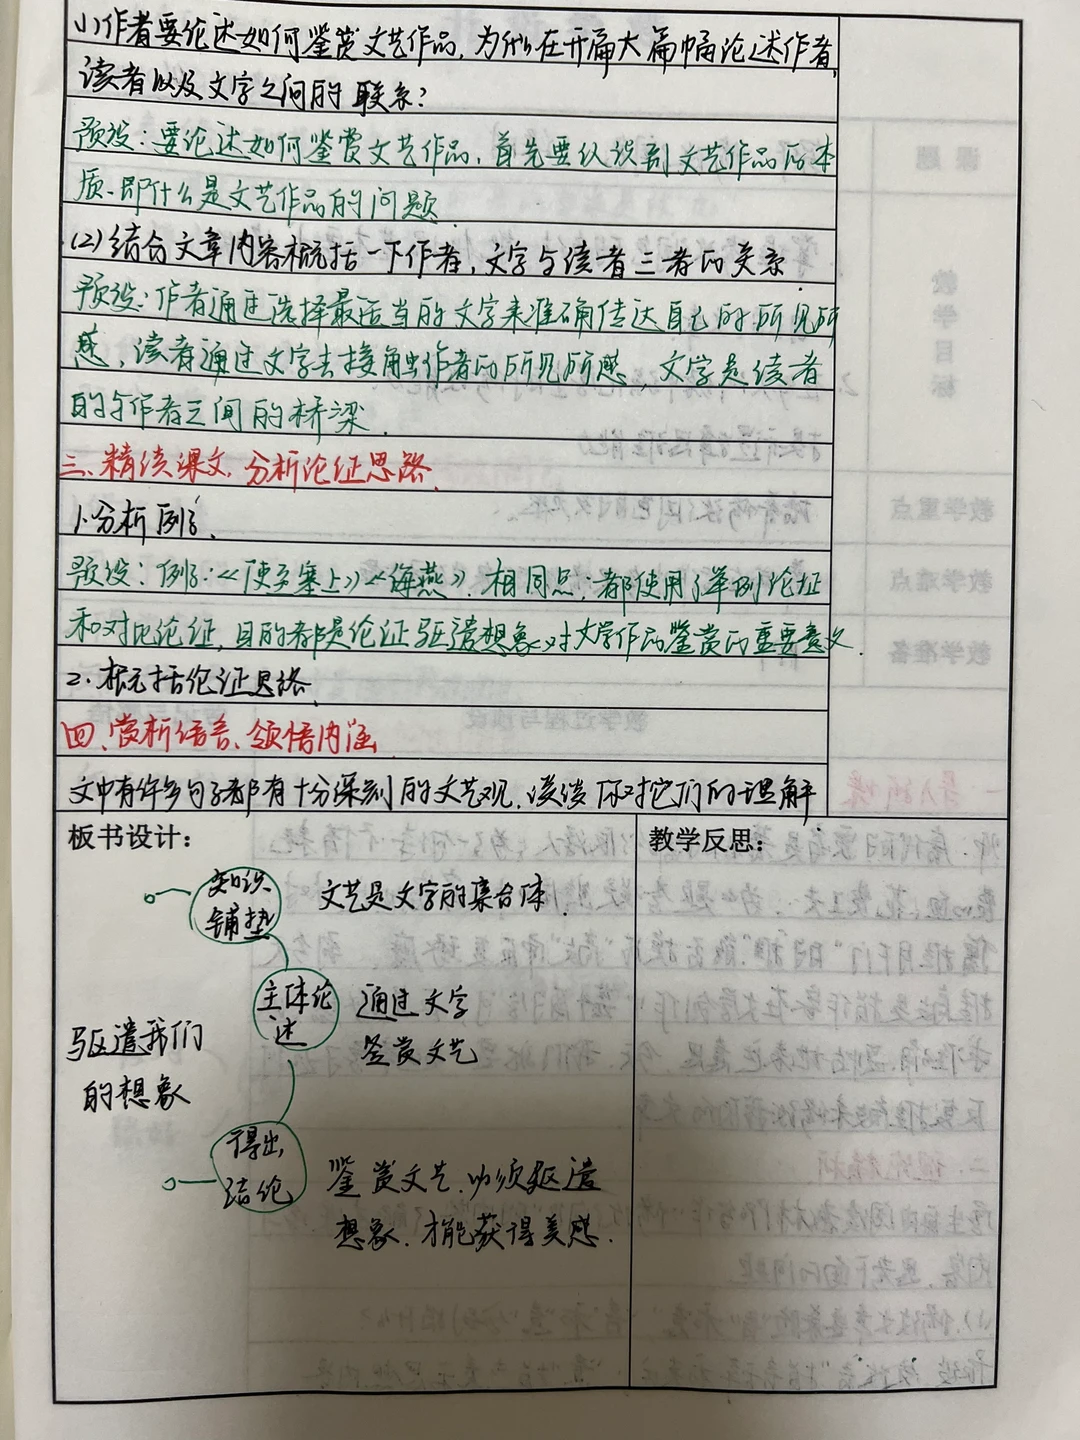 (1)作者要论述如何鉴赏文艺作品,为什么在开篇大篇幅论述作者,
读者以及文字之间的联系?
预设:要论述如何鉴赏文艺作品,首先要认识到文艺作品的本
质、即什么是文艺作品的问题.
(2)结合文章内容概括一下作者,文字与读者三者的关系.
预设:作者通过选择最适当的文字来准确传达自己的所见所
感,读者通过文字去接触作者的所见所感,文字是读者
的与作者之间的桥梁.
三、精读课文,分析论证思路.
1.分析例子.
预设:例子:《使至塞上》《海燕》.相同点:都使用了举例论证
和对比论证,目的都是论证驱遣想象对文学作品鉴赏的重要意义.
2.概括论证思路.
四、赏析语言、领悟内涵
文中有许多句子都有十分深刻的文艺观,谈谈你对它们的理解.
板书设计:
教学反思:
知识
铺垫
文艺是文字的集合体.
主体论
述
通过文字
鉴赏文艺
驱遣我们
的想象
得出
结论
鉴赏文艺.必须驱遣
想象.才能获得美感.